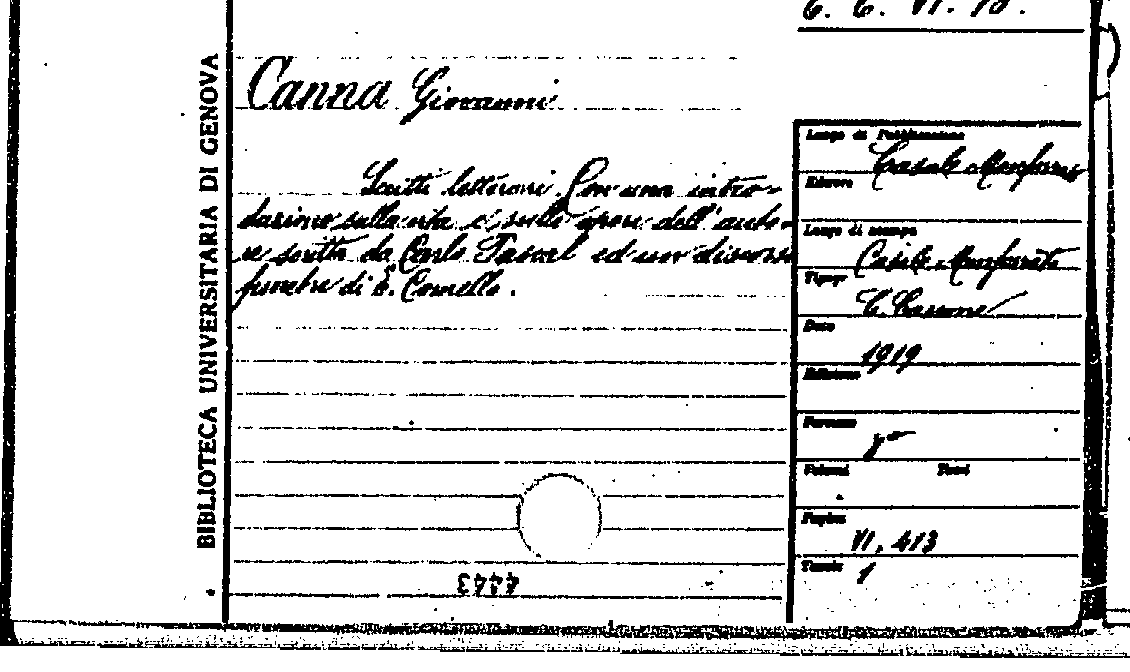 6. 6. VI. 18.
BIBLIOTECA UNIVERSITARIA DI GENOVA
Canna Giovanni
Scritti letterari Con una intro-
duzione sulla vita e sulle opere dell'auto-
re scritta da Carlo Pascal ed un discorso
funebre di E. Comello.
Luogo di Pubblicazione
Casale Monferrato
Editore
Luogo di stampa
Casale Monferrato
Tipogr
C. Cassone
Data
1919
Edizione
Formato
8°
Volumi Tomi
Pagine
VI, 413
Tavole
1
4443